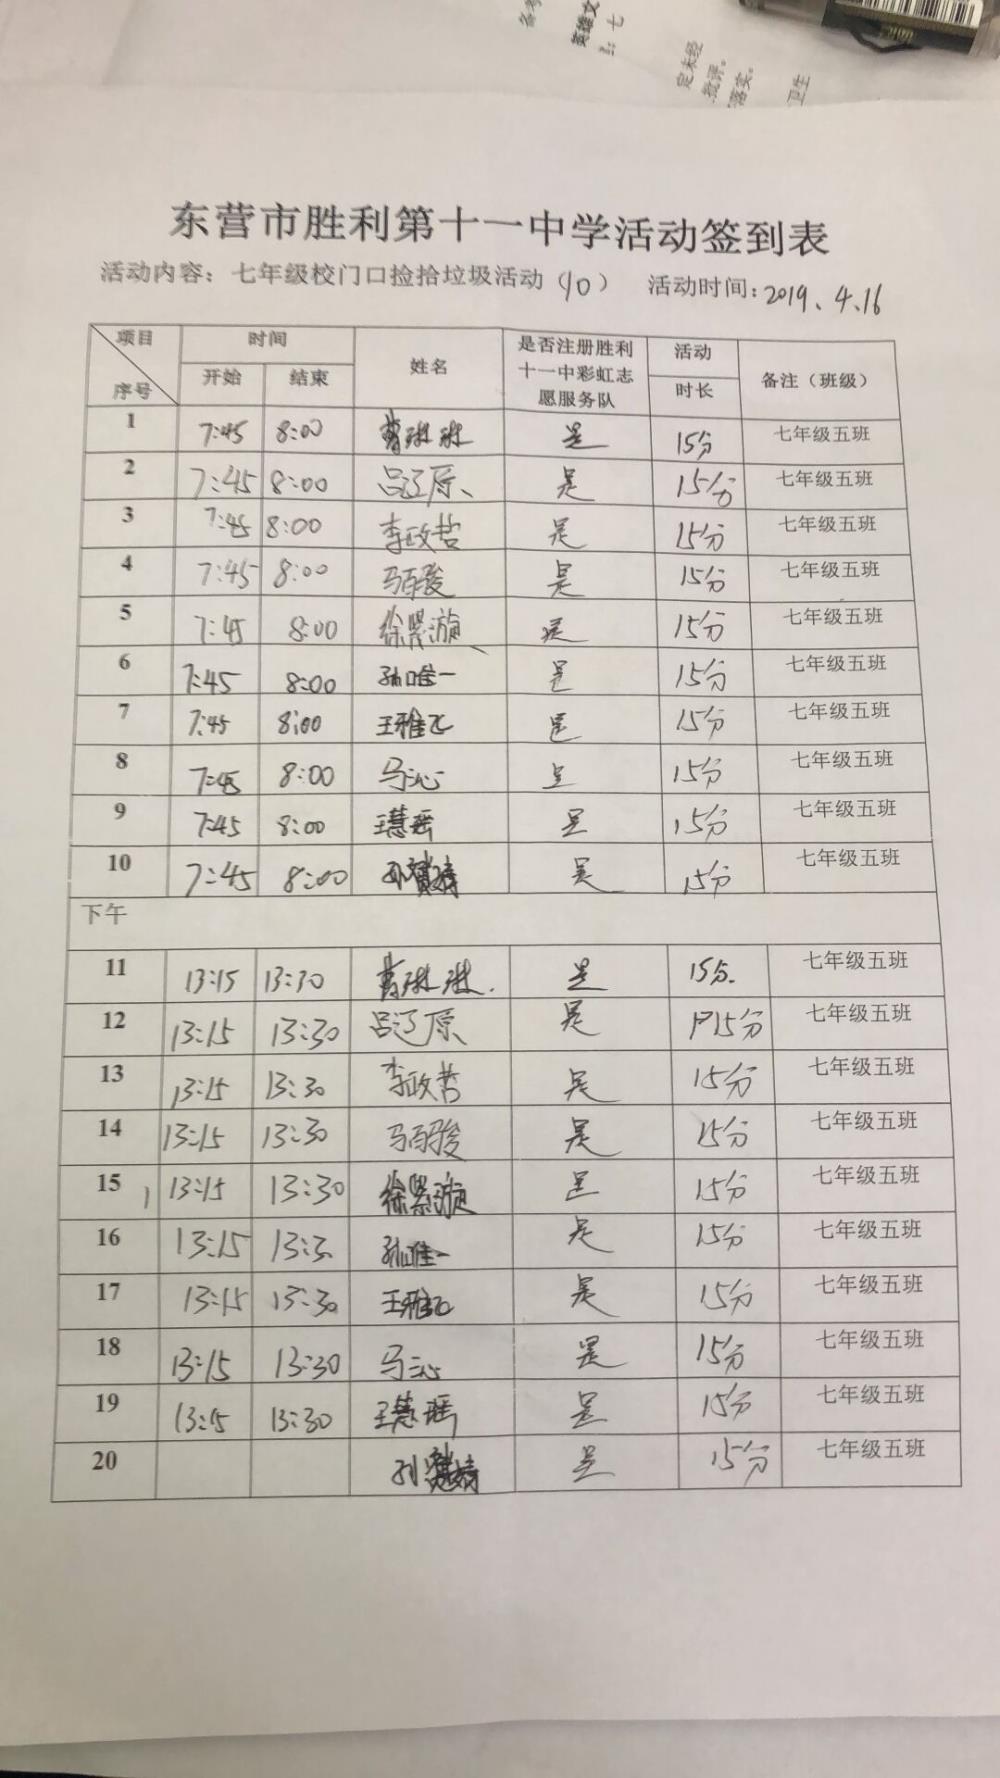 东营市胜利第十一中学活动签到表
活动内容：七年级校门口捡拾垃圾活动（10） 活动时间：2019.4.16
项目 序号 时间 开始 结束 姓名 是否注册胜利十一中彩虹志愿服务队 活动时长 备注（班级）
1 7:45 8:00 曹琳琳 是 15分 七年级五班
2 7:45 8:00 吕辽原 是 15分 七年级五班
3 7:45 8:00 李政哲 是 15分 七年级五班
4 7:45 8:00 马百骏 是 15分 七年级五班
5 7:45 8:00 徐 是 15分 七年级五班
6 7:45 8:00 孙唯一 是 15分 七年级五班
7 7:45 8:00 王雅飞 是 15分 七年级五班
8 7:45 8:00 马沁 是 15分 七年级五班
9 7:45 8:00 王慧瑶 是 15分 七年级五班
10 7:45 8:00 孙 是 15分 七年级五班
下午
11 13:15 13:30 曹琳琳. 是 15分. 七年级五班
12 13:15 13:30 吕辽原 是 15分 七年级五班
13 13:15 13:30 李政哲 是 15分 七年级五班
14 13:15 13:30 马百骏 是 15分 七年级五班
15 13:15 13:30 徐 是 15分 七年级五班
16 13:15 13:3 孙唯一 是 15分 七年级五班
17 13:15 13:30 王雅飞 是 15分 七年级五班
18 13:15 13:30 马沁 是 15分 七年级五班
19 13:15 13:30 王慧瑶 是 15分 七年级五班
20 孙 是 15分 七年级五班